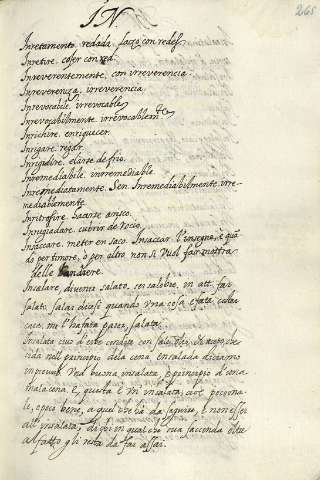 IN.
265
Inretamento. redada, lazo con redes
Inretire. coser con red.
Inreverentemente. con irreverencia.
Inreverenza. irreverencia.
Inrevocabile. irrevocable
Inrevocabilmente. irrevocablemte
Inrichire. enriquecer.
Inrigare. regar.
Inrigidire. elarse de frio.
Inremediabile. inremediable
Inremediatamente. Sen Inremediabilmente. irre-
mediablemente
Inrugiadare. cubrir de rocio
Insaccare. meter en saco. Insaccar l'insegne, è quã
do per timore, o per altro non si vuol far mostra
delle bandiere.
Insalare, divenir salato, ser salobre, in att. far
salato. salar dicesi quando una cosa è stata
cara, me l'ha fatta pagar salata.
Insalata cruda
nel principio della cena, ensalada diciamo
una buona insalata, principio d'una
mala cena. E, questa è un insalata, cioè
e poco bene, a quel che ha da seguire, e non esser
all'insalata, di chi in qualche sua facenda oltre
al fatto gli resta da far assai.